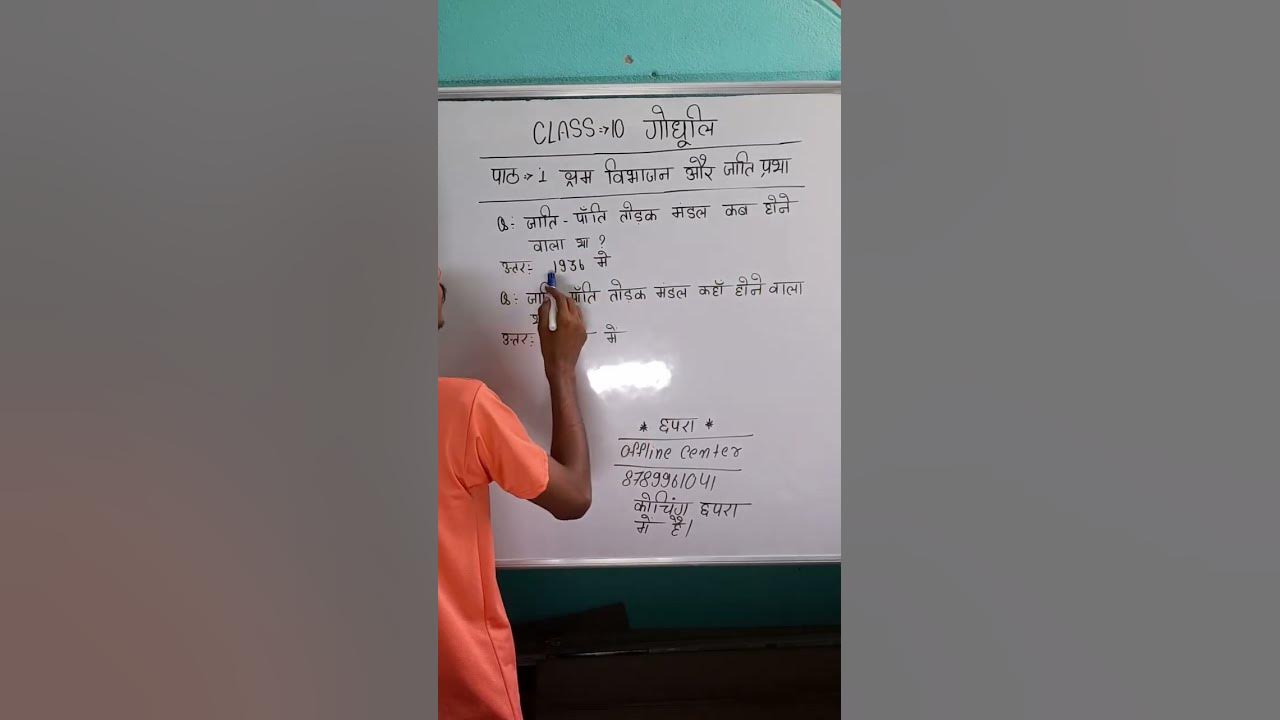 CLASS→10 गोधूलि
पाठ→1 श्रम विभाजन और जाति प्रथा
Q: जाति-पाँति तोड़क मंडल कब होने
वाला था ?
उत्तर: 1936 मे
Q: जाति पाँति तोड़क मंडल कहाँ होने वाला
उत्तर: में
* छपरा *
offline center
8789961041
कोचिंग छपरा
में है।